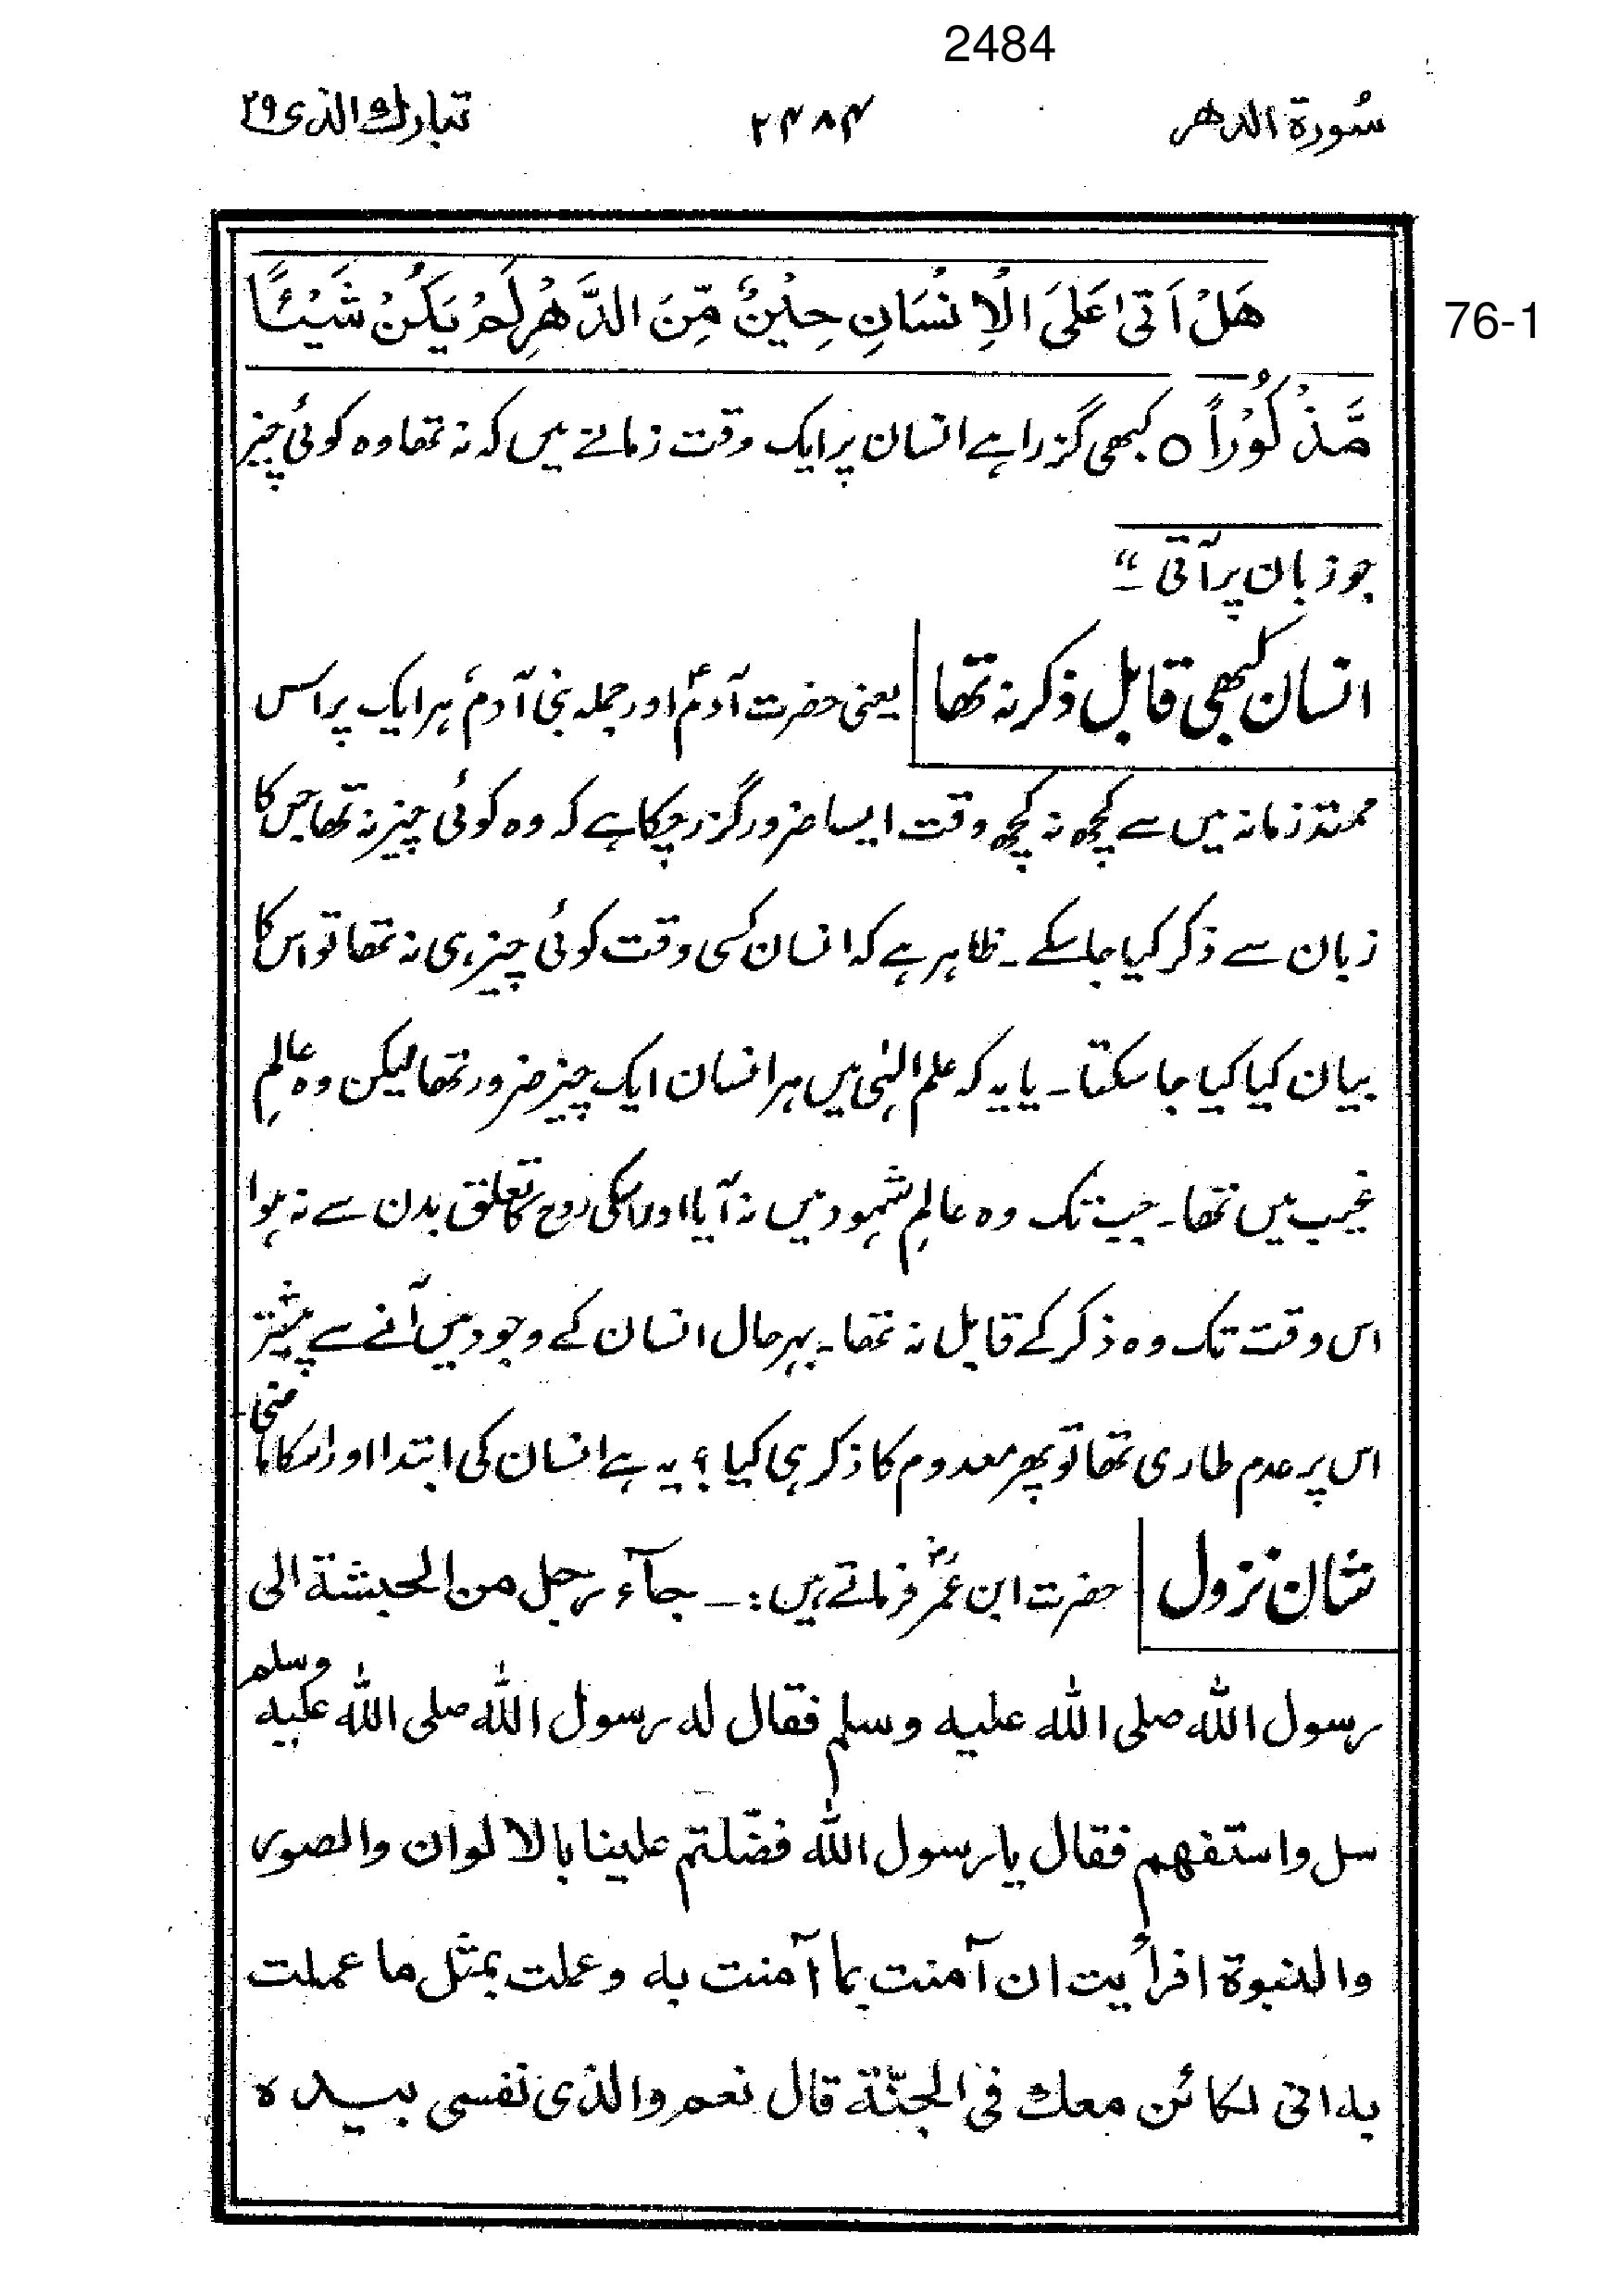 2484
سُورة الدهر ۲۴۸۴ تبارك الذی ۲۹
هَلْ اَتٰی عَلَی الْاِنْسَانِ حِیْنٌ مِّنَ الدَّهْرِ لَمْ یَكُنْ شَیْئًا
76-1
مَّذْكُوْرًا ○ کبھی گزرا ہے انسان پر ایک وقت زمانے میں کہ نہ تھا وہ کوئی چیز
جو زبان پر آتی ۔"
انسان کبھی قابل ذکر نہ تھا یعنی حضرت آدمؑ اور جملہ بنی آدمؑ ہر ایک پر اس
ممتد زمانہ میں سے کچھ نہ کچھ وقت ایسا ضرور گزر چکا ہے کہ وہ کوئی چیز نہ تھا جس کا
زبان سے ذکر کیا جا سکے ۔ ظاہر ہے کہ انسان کسی وقت کوئی چیز ہی نہ تھا تو اس کا
بیان کیا کیا جا سکتا ۔ یا یہ کہ علم الٰہی میں ہر انسان ایک چیز ضرور تھا لیکن وہ عالمِ
غیب میں تھا ۔ جب تک وہ عالمِ شہود میں نہ آیا اور اسکی روح کا تعلق بدن سے نہ ہوا
اس وقت تک وہ ذکر کے قابل نہ تھا ۔ بہر حال انسان کے وجود میں آنے سے پیشتر
اس پر عدم طاری تھا تو پھر معدوم کا ذکر ہی کیا ؟ یہ ہے انسان کی ابتدا اور اسکا ماضی ۔
شان نزول حضرت ابن عمرؓ فرماتے ہیں :۔ جآء رجل من الحبشة الی
رسول اللّٰه صلی اللّٰه علیه وسلم فقال له رسول اللّٰه صلی اللّٰه علیه وسلم
سل واستفهم فقال یا رسول اللّٰه فضّلتم علینا بالالوان والصور
والنبوة افرأیت ان آمنت بما آمنت به وعملت بمثل ما عملت
به انی لكائن معك فی الجنّة قال نعم والذی نفسی بیده